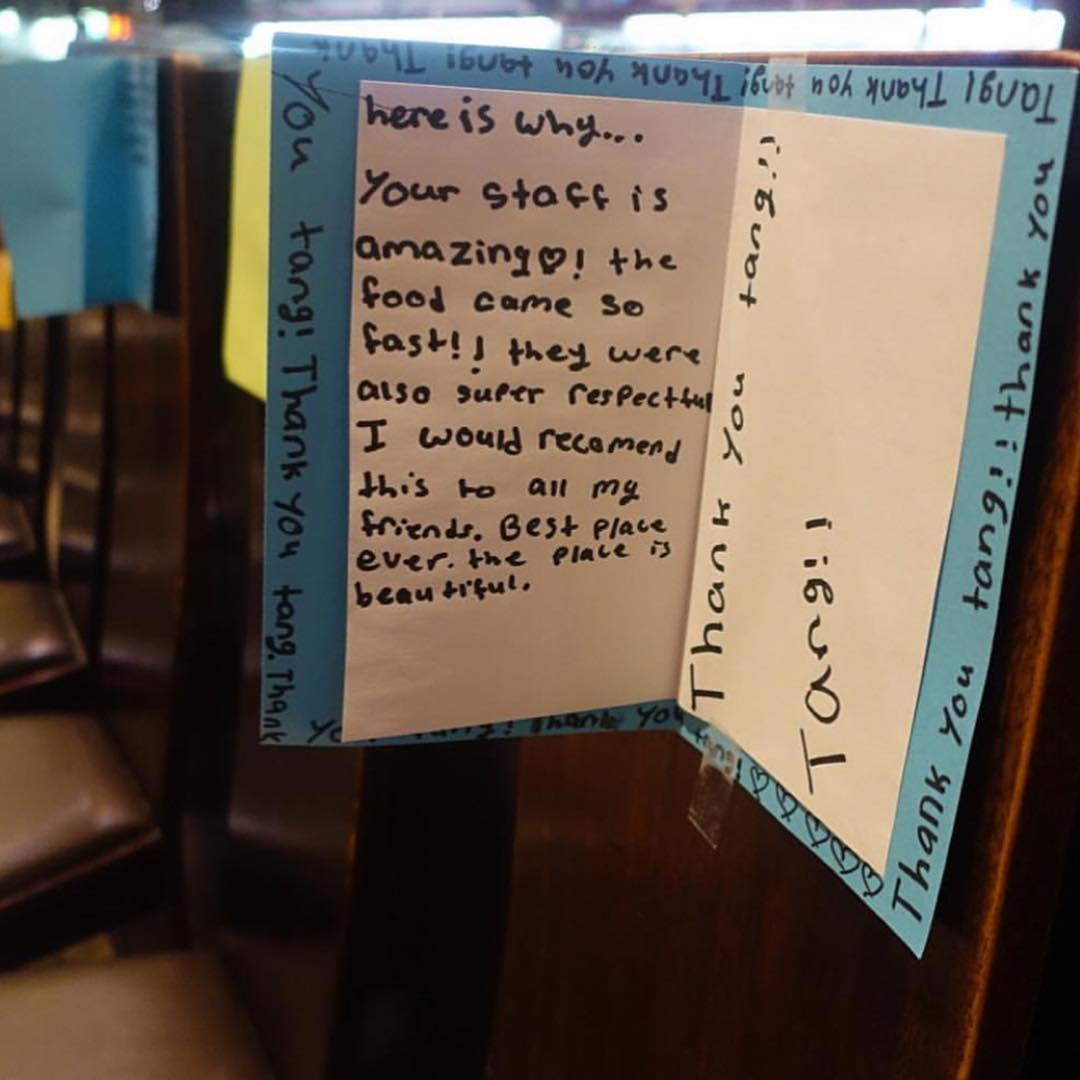 here is why...
Your staff is
amazing♡! the
food came so
fast!! they were
also super respectful
I would recomend
this to all my
friends. Best place
ever. the place is
beautiful.
Thank you tang!!
Tang!!
You tang! Thank you tang. Thank
tang! Thank you
tang! ♡♡♡♡♡
Thank you tang!!! thank you
Tang! Thank you tang! Thank you tang! Thank